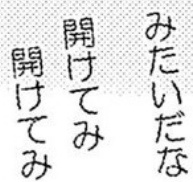 みたいだな
開けてみ
開けてみ